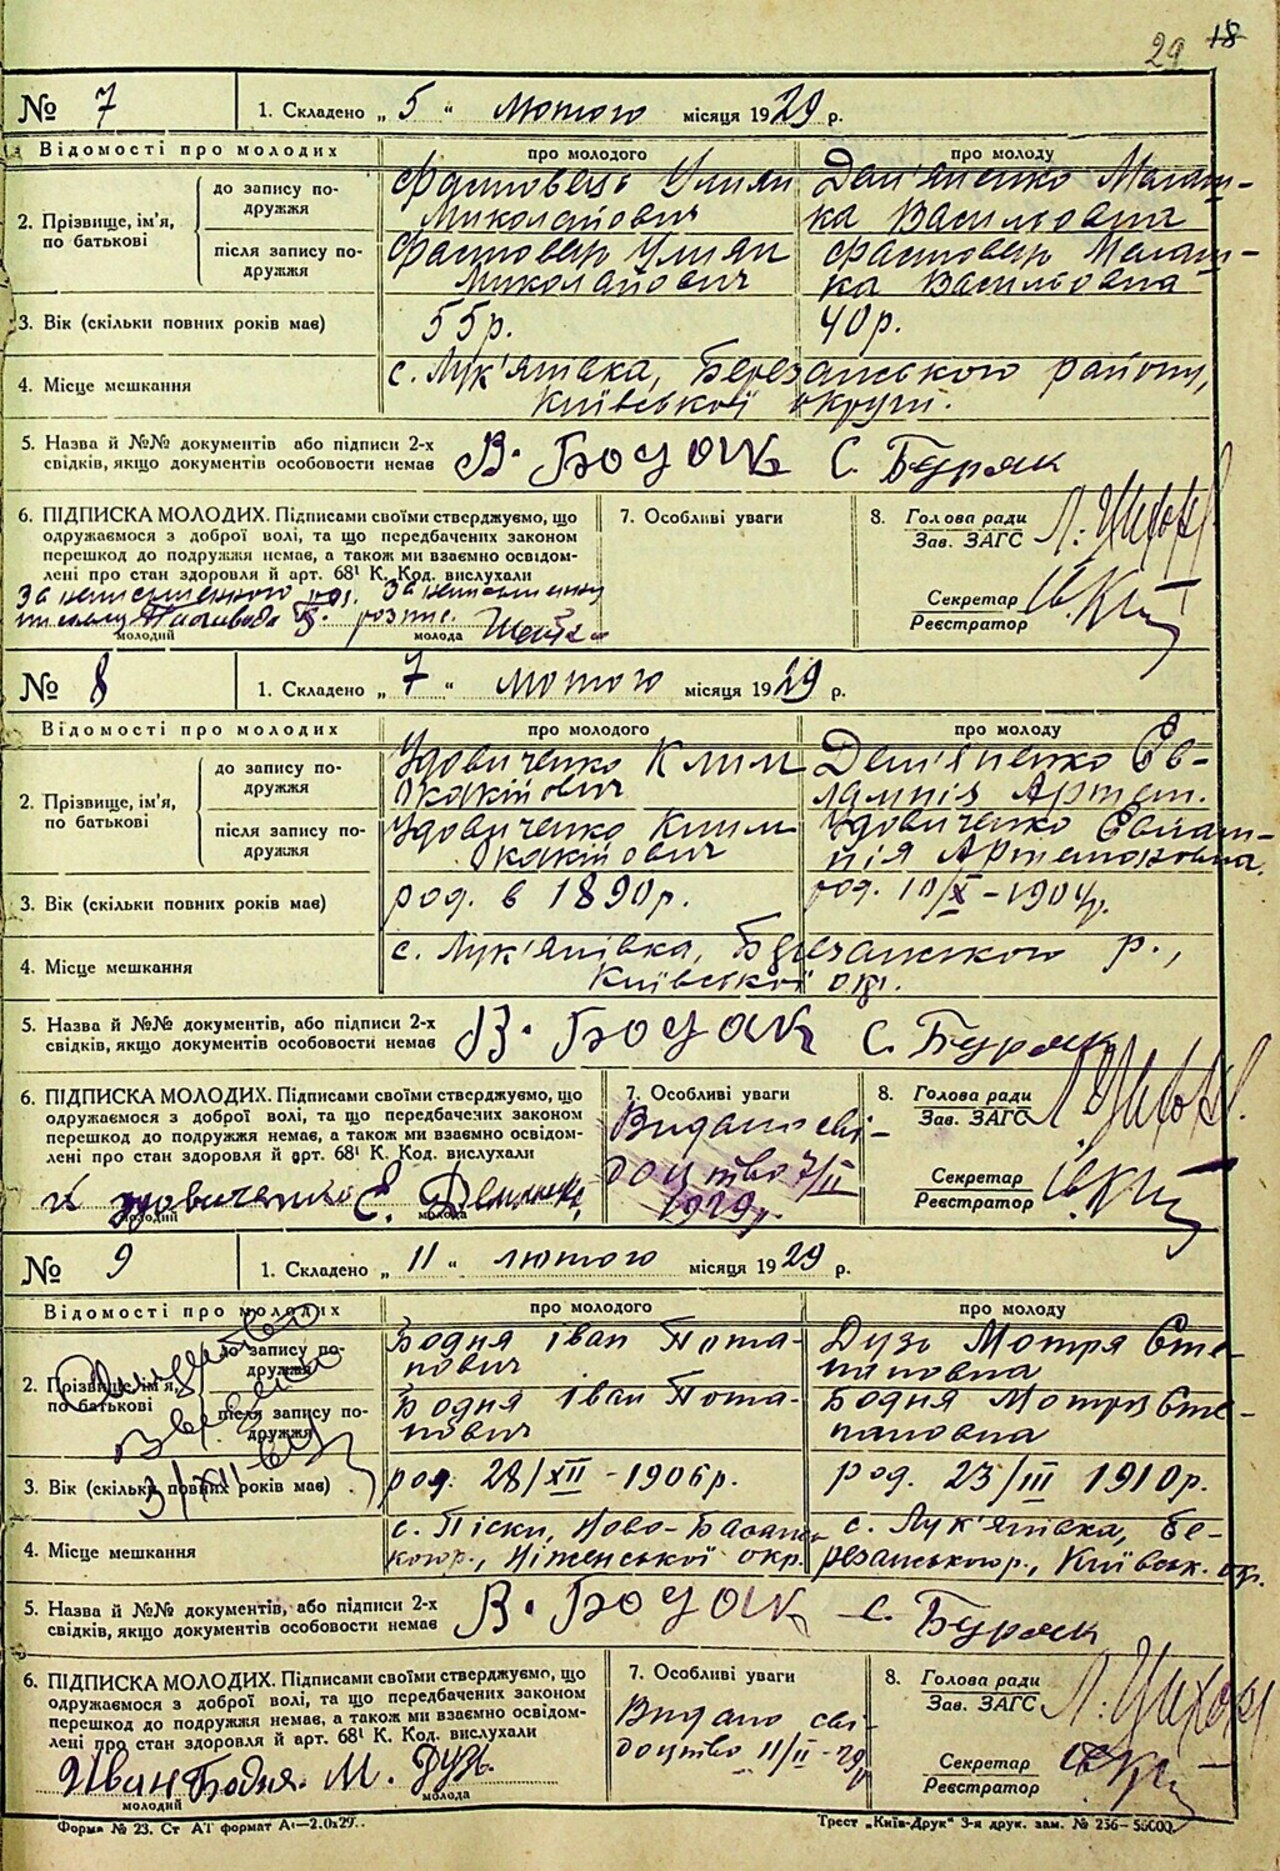 29 18
№ 7 1. Складено „ 5 “ лютого місяця 1929 р.
Відомості про молодих про молодого про молоду
2. Прізвище, ім'я, по батькові
до запису подружжя
Фастовець Улиян Дем'яненко Малаш-
Миколайович ка Васильовна
після запису подружжя
Фастовец Улиян Фастовец Малаш-
Миколайович ка Васильовна
3. Вік (скільки повних років має) 55р. 40р.
4. Місце мешкання с. Лук'янівка, Березанського району,
Київської округи.
5. Назва й №№ документів або підписи 2-х
свідків, якщо документів особовости немає В. Боцок С. Буряк
6. ПІДПИСКА МОЛОДИХ. Підписами своїми стверджуємо, що
одружаємося з доброї волі, та що передбачених законом
перешкод до подружжя немає, а також ми взаємно освідом-
лені про стан здоровля й арт. 68¹ К. Код. вислухали
За неписьменного За неписьменну
розпис.
молодий молода
7. Особливі уваги
8. Голова ради
Зав. ЗАГС
Секретар
Реєстратор
№ 8 1. Складено „ 7 “ лютого місяця 1929 р.
Відомості про молодих про молодого про молоду
2. Прізвище, ім'я, по батькові
до запису подружжя
Удовиченко Клим Дем'яненко Єв-
Окакійович лампія Артем.
після запису подружжя
Удовиченко Клим Удовиченко Євлам-
Окакійович пія Артемоновна
3. Вік (скільки повних років має) род. в 1890р. род. 10/X - 1904р.
4. Місце мешкання с. Лук'янівка, Березанського р.,
Київської окр.
5. Назва й №№ документів, або підписи 2-х
свідків, якщо документів особовости немає В. Боцок С. Буряк
6. ПІДПИСКА МОЛОДИХ. Підписами своїми стверджуємо, що
одружаємося з доброї волі, та що передбачених законом
перешкод до подружжя немає, а також ми взаємно освідом-
лені про стан здоровля й арт. 68¹ К. Код. вислухали
К Удовиченко Є.
молодий молода
7. Особливі уваги
Видано сві-
доцтво 7/II
1929р.
8. Голова ради
Зав. ЗАГС
Секретар
Реєстратор
№ 9 1. Складено „ 11 “ лютого місяця 1929 р.
Відомості про молодих про молодого про молоду
2. Прізвище, ім'я, по батькові
до запису подружжя
Бодня Іван Пота- Дузь Мотря Сте-
пович пановна
після запису подружжя
Бодня Іван Пота- Бодня Мотря Сте-
пович пановна
3/XII
3. Вік (скільки повних років має) род. 28/XII - 1906р. род. 23/III 1910р.
4. Місце мешкання с. Піски, Ново-Басансь- с. Лук'янівка, Бе-
когор., Ніженської окр. резанськогор., Київськ. окр.
5. Назва й №№ документів, або підписи 2-х
свідків, якщо документів особовости немає В. Боцок С. Буряк
6. ПІДПИСКА МОЛОДИХ. Підписами своїми стверджуємо, що
одружаємося з доброї волі, та що передбачених законом
перешкод до подружжя немає, а також ми взаємно освідом-
лені про стан здоровля й арт. 68¹ К. Код. вислухали
Иван Бодня. М. Дузь.
молодий молода
7. Особливі уваги
Видано сві-
доцтво 11/II - 29р
8. Голова ради
Зав. ЗАГС
Секретар
Реєстратор
Форма № 23. Ст АТ формат А₄—2.0х29.. Трест „Київ-Друк“ 3-я друк. зам. № 236—55000.